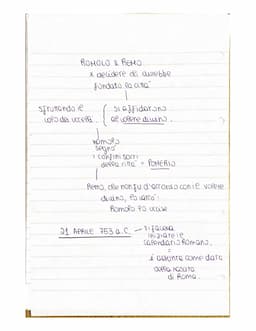 ROMOLO E REMO
x decidere chi avrebbe
fondato la città
sfruttando il
volo dei uccelli
si affidarono
al volere divino.
romolo
segnò
i confini sacri
della città = POMERIO
Remo, che non fu d'accordo con il volere
divino, lo
Romolo lo uccise
21 APRILE 753 a.C. → si faceva
iniziare il
calendario Romano.
=
è assunta come data
della nascita
di Roma.